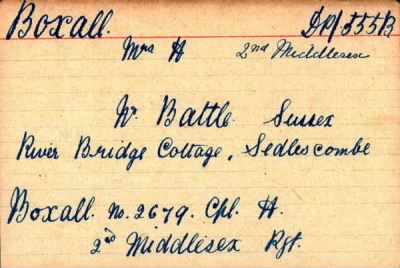 Boxall. DP/555/B
Mrs H 2nd Middlesex
Nr Battle Sussex
River Bridge Cottage, Sedlescombe
Boxall. No. 2679. Cpl. H.
2nd Middlesex Rgt.